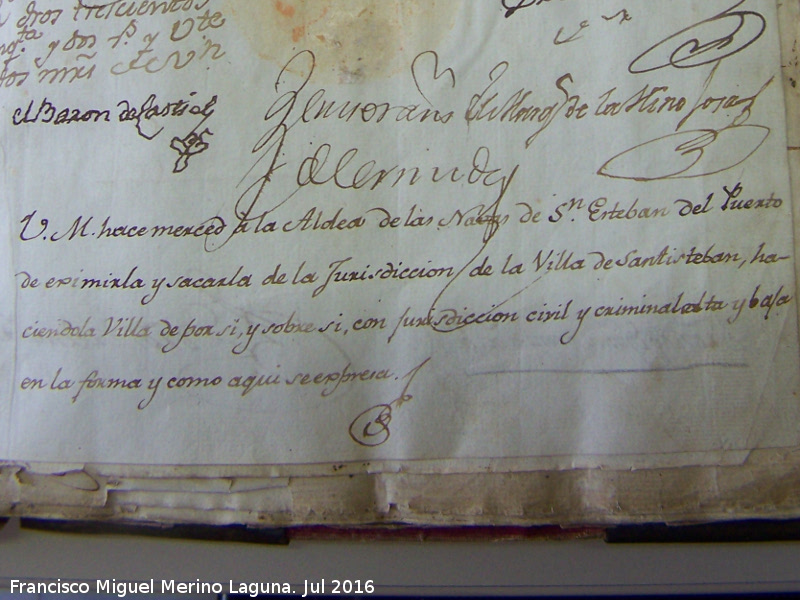 dros trescientos
y dos rs. y Vte
dos mrs de Vn
el Baron de Casti
de la Hino josa
V. M. hace merced à la Aldea de las Navas de Sn. Esteban del Puerto
de eximirla y sacarla de la Jurisdiccion de la Villa de Santisteban, ha-
ciendola Villa de por si, y sobre si, con jurisdiccion civil y criminal alta y baja
en la forma y como aqui se expresa.
Francisco Miguel Merino Laguna. Jul 2016